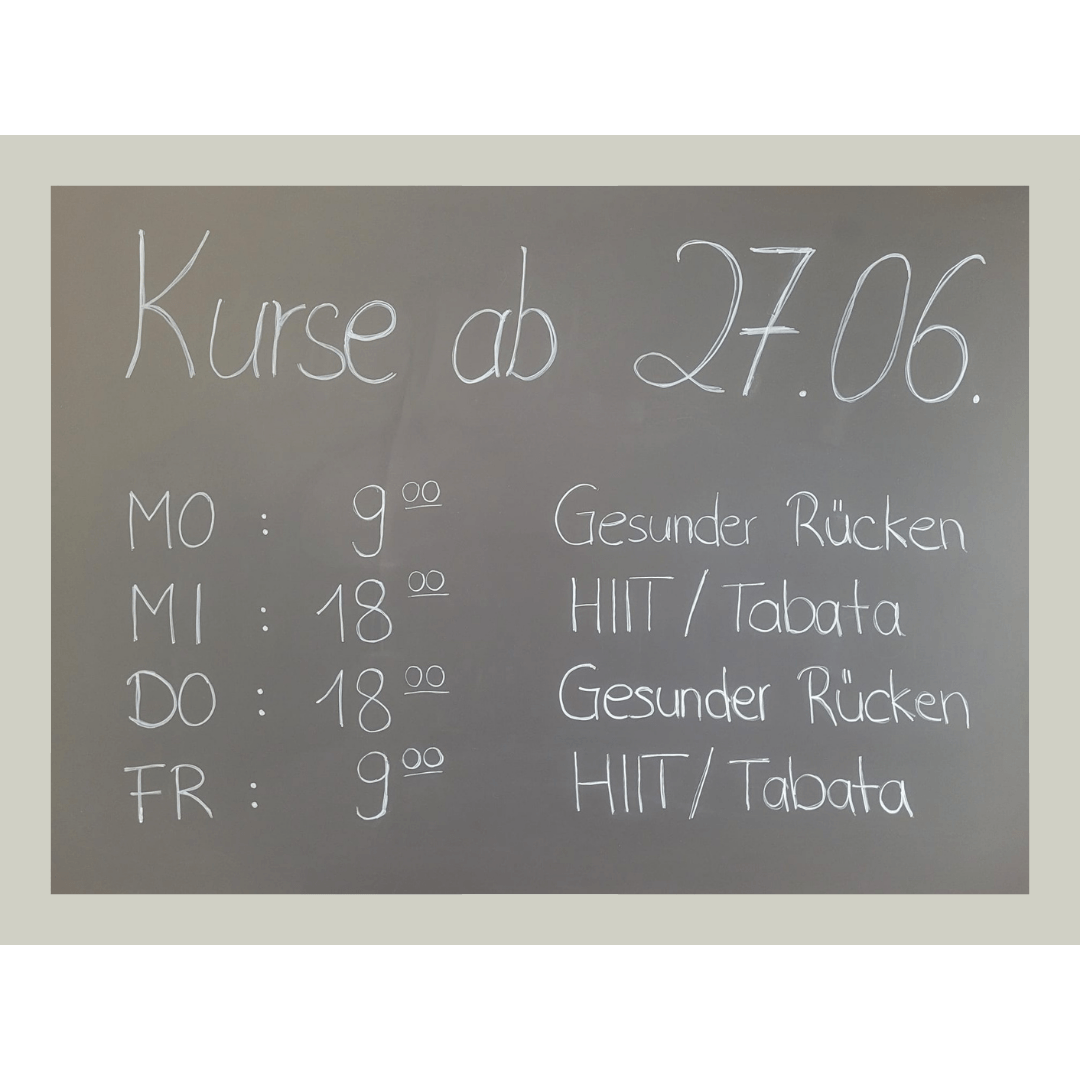 Kurse ab 27.06.
MO : 9 00 Gesunder Rücken
MI : 18 00 HIIT / Tabata
DO : 18 00 Gesunder Rücken
FR : 9 00 HIIT / Tabata